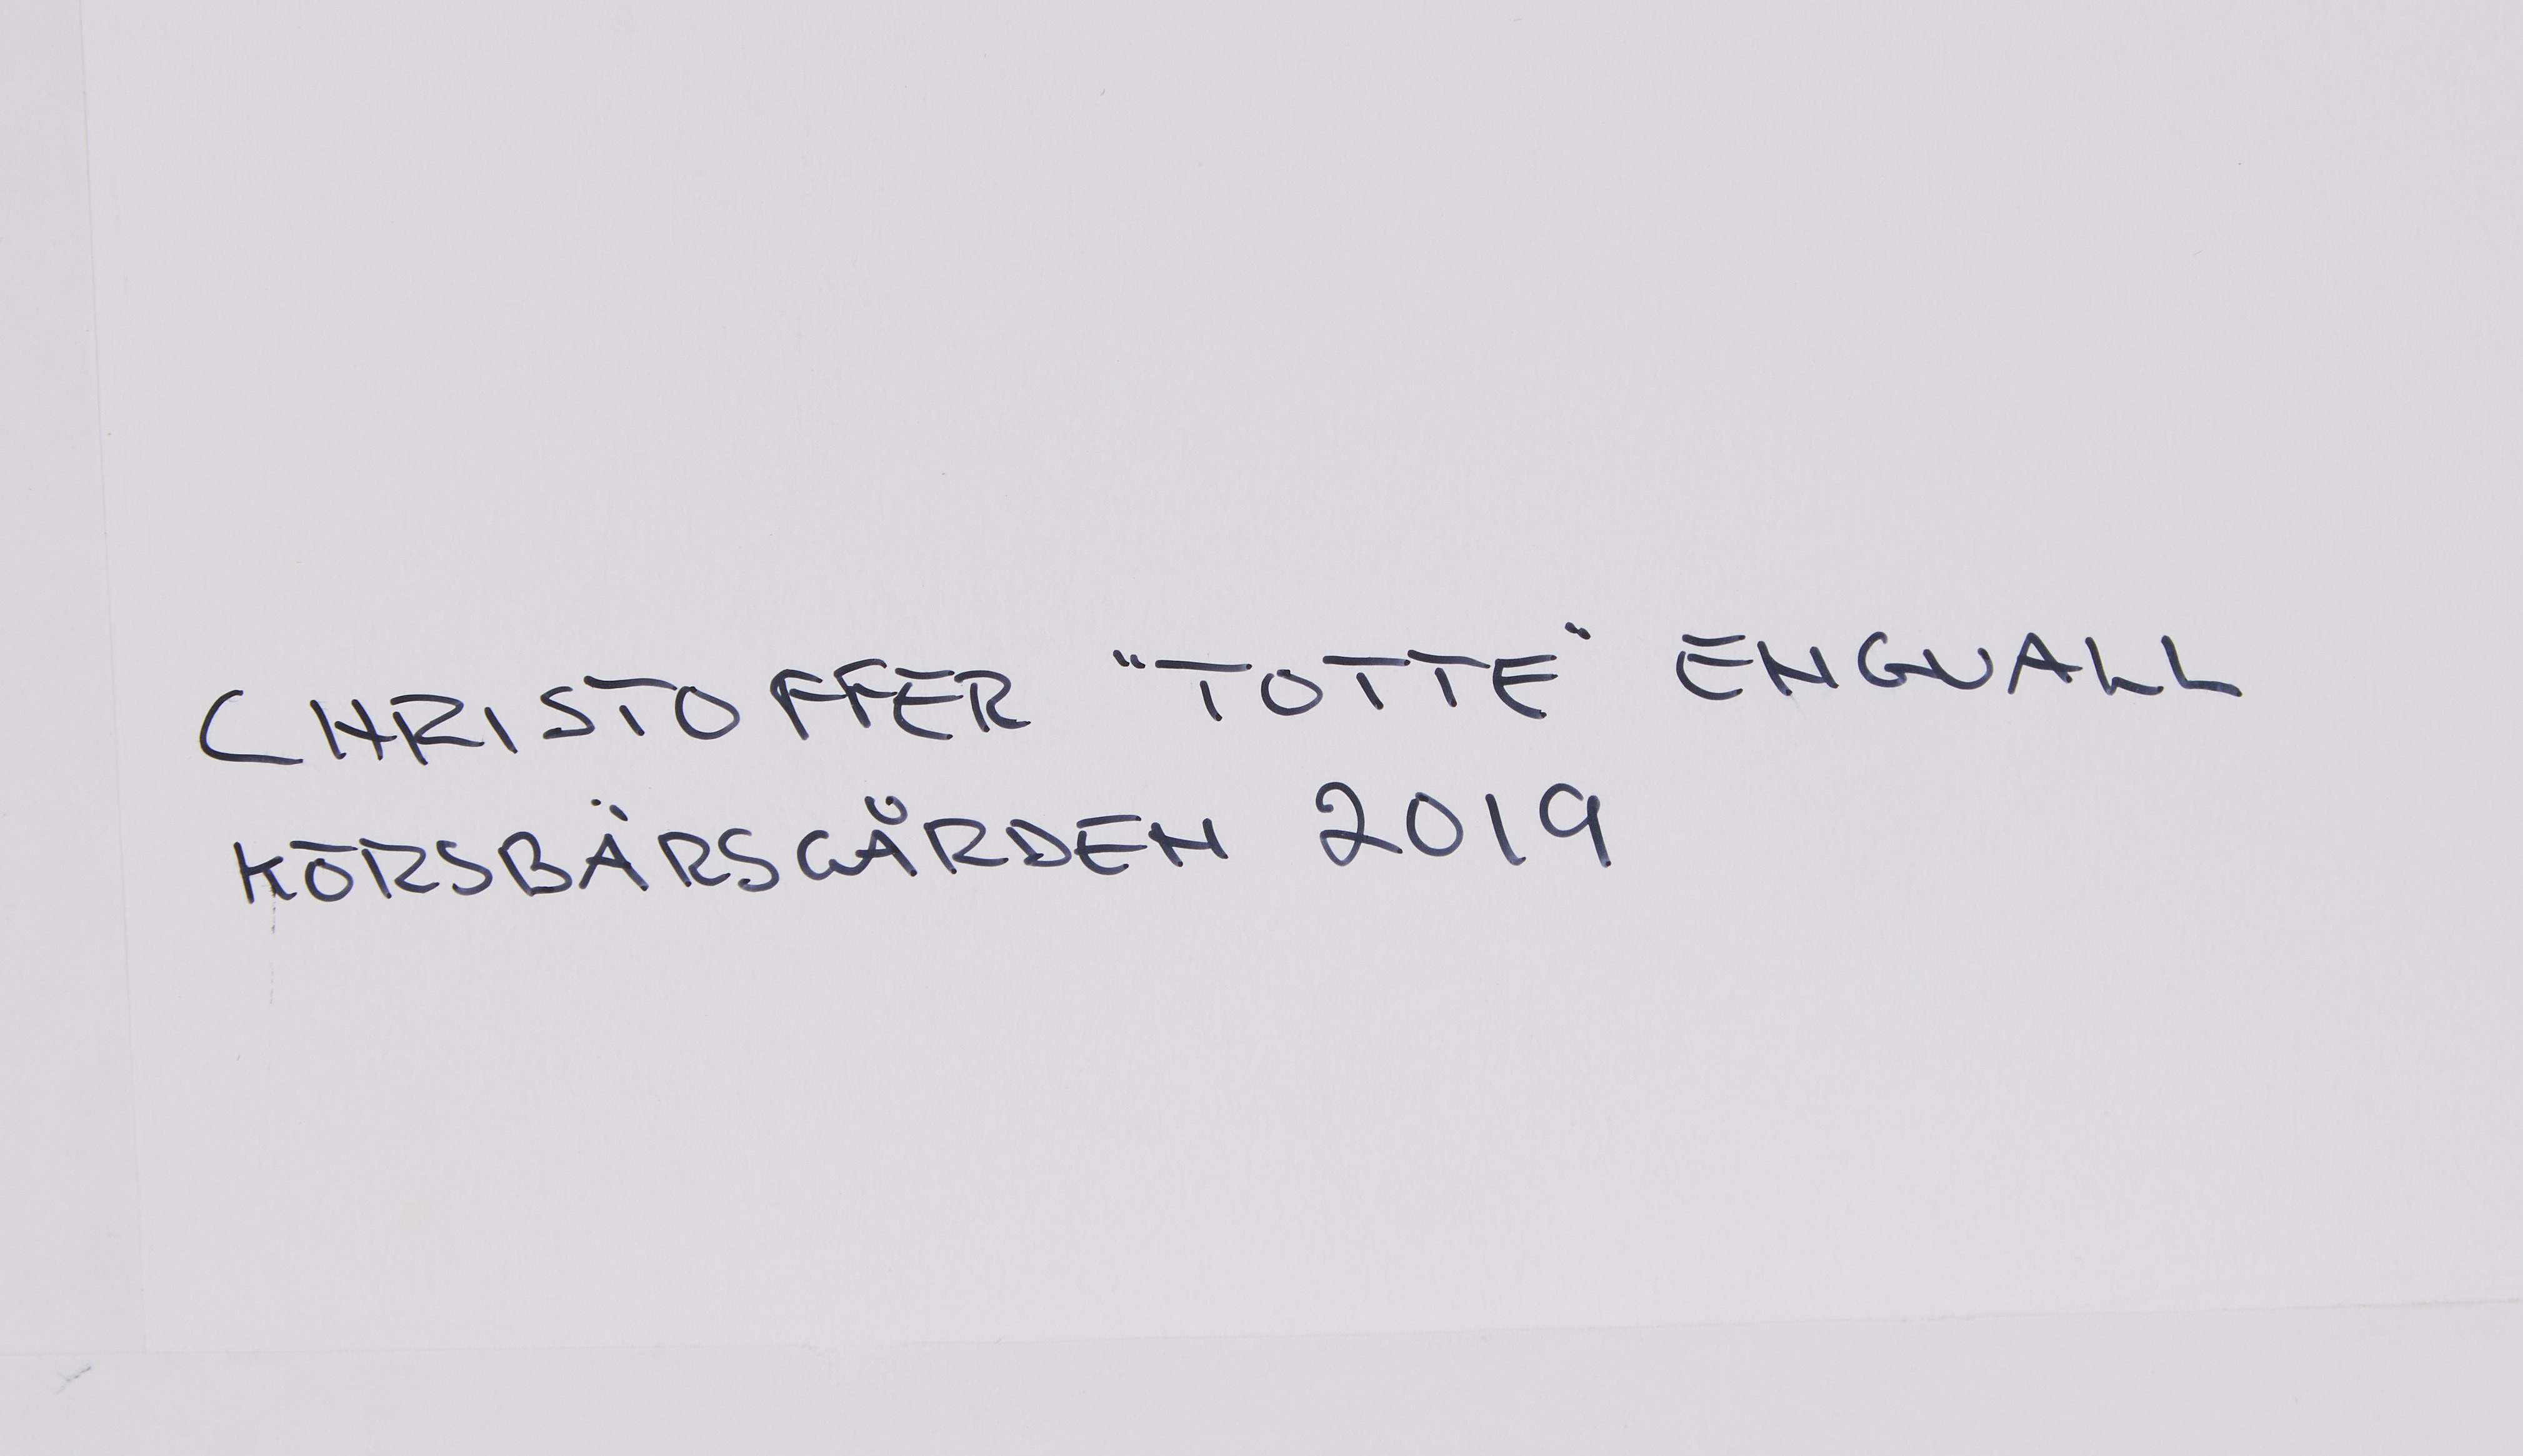 CHRISTOFFER "TOTTE" ENGVALL
KÖRSBÄRSGÅRDEN 2019